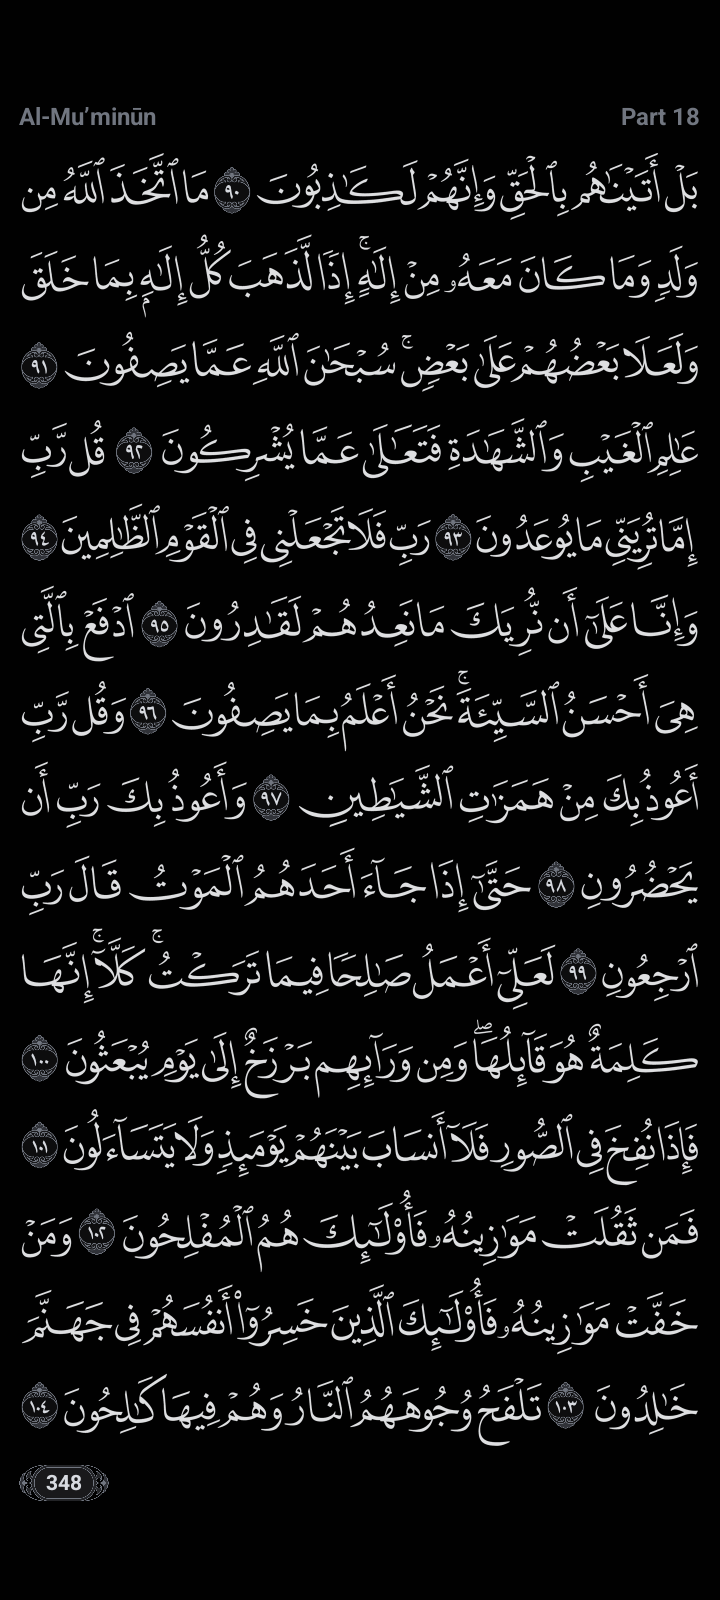 Al-Mu’minūn
Part 18
بَلْ أَتَيْنَٰهُم بِٱلْحَقِّ وَإِنَّهُمْ لَكَٰذِبُونَ ٩٠ مَا ٱتَّخَذَ ٱللَّهُ مِن
وَلَدٍ وَمَا كَانَ مَعَهُۥ مِنْ إِلَٰهٍ ۚ إِذًا لَّذَهَبَ كُلُّ إِلَٰهٍۭ بِمَا خَلَقَ
وَلَعَلَا بَعْضُهُمْ عَلَىٰ بَعْضٍ ۚ سُبْحَٰنَ ٱللَّهِ عَمَّا يَصِفُونَ ٩١
عَٰلِمِ ٱلْغَيْبِ وَٱلشَّهَٰدَةِ فَتَعَٰلَىٰ عَمَّا يُشْرِكُونَ ٩٢ قُل رَّبِّ
إِمَّا تُرِيَنِّى مَا يُوعَدُونَ ٩٣ رَبِّ فَلَا تَجْعَلْنِى فِى ٱلْقَوْمِ ٱلظَّٰلِمِينَ ٩٤
وَإِنَّا عَلَىٰٓ أَن نُّرِيَكَ مَا نَعِدُهُمْ لَقَٰدِرُونَ ٩٥ ٱدْفَعْ بِٱلَّتِى
هِىَ أَحْسَنُ ٱلسَّيِّئَةَ ۚ نَحْنُ أَعْلَمُ بِمَا يَصِفُونَ ٩٦ وَقُل رَّبِّ
أَعُوذُ بِكَ مِنْ هَمَزَٰتِ ٱلشَّيَٰطِينِ ٩٧ وَأَعُوذُ بِكَ رَبِّ أَن
يَحْضُرُونِ ٩٨ حَتَّىٰٓ إِذَا جَآءَ أَحَدَهُمُ ٱلْمَوْتُ قَالَ رَبِّ
ٱرْجِعُونِ ٩٩ لَعَلِّىٓ أَعْمَلُ صَٰلِحًا فِيمَا تَرَكْتُ ۚ كَلَّآ ۚ إِنَّهَا
كَلِمَةٌ هُوَ قَآئِلُهَا ۖ وَمِن وَرَآئِهِم بَرْزَخٌ إِلَىٰ يَوْمِ يُبْعَثُونَ ١٠٠
فَإِذَا نُفِخَ فِى ٱلصُّورِ فَلَآ أَنسَابَ بَيْنَهُمْ يَوْمَئِذٍ وَلَا يَتَسَآءَلُونَ ١٠١
فَمَن ثَقُلَتْ مَوَٰزِينُهُۥ فَأُو۟لَٰٓئِكَ هُمُ ٱلْمُفْلِحُونَ ١٠٢ وَمَنْ
خَفَّتْ مَوَٰزِينُهُۥ فَأُو۟لَٰٓئِكَ ٱلَّذِينَ خَسِرُوٓا۟ أَنفُسَهُمْ فِى جَهَنَّمَ
خَٰلِدُونَ ١٠٣ تَلْفَحُ وُجُوهَهُمُ ٱلنَّارُ وَهُمْ فِيهَا كَٰلِحُونَ ١٠٤
348